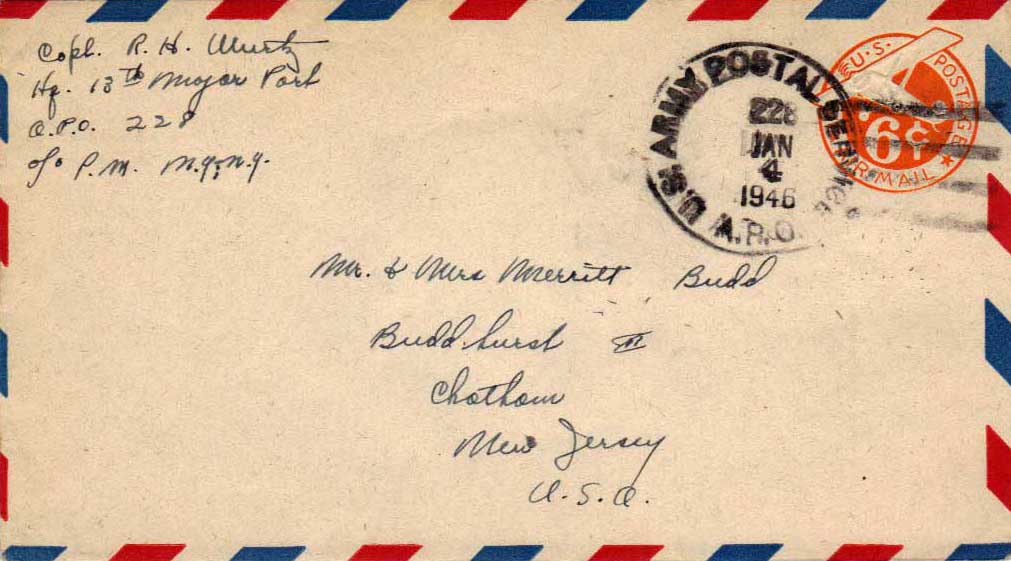 Capt. R. H. Wurtz
Hq. 13th Major Port
A.P.O. 228
c/o P.M. N.Y. N.Y.
U.S. ARMY POSTAL SERVICE
228
JAN
4
1946
A.P.O.
U.S. POSTAGE
6¢
AIR MAIL
Mr. & Mrs Merritt Budd
Budd hurst III
Chatham
New Jersey
U.S.A.